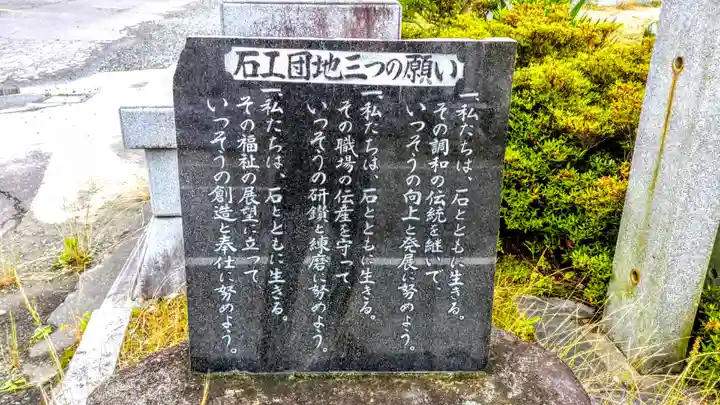 石工団地三つの願い
一、私たちは、石とともに生きる。
その調和の伝統を継いで、
いつそうの向上と発展に努めよう。
一、私たちは、石とともに生きる。
その職場の伝産を守って
いつそうの研鑽と練磨に努めよう。
一、私たちは、石とともに生きる。
その福祉の展望に立って
いつそうの創造と奉仕に努めよう。